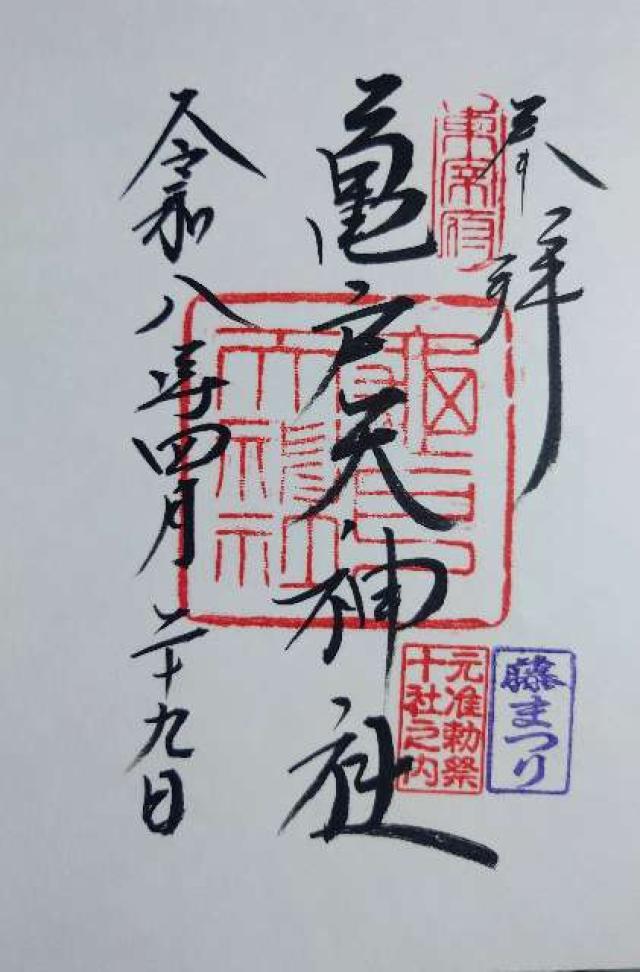 奉拝
東宰府
亀戸天神社
元准勅祭
十社之内
藤まつり
令和八年四月二十九日